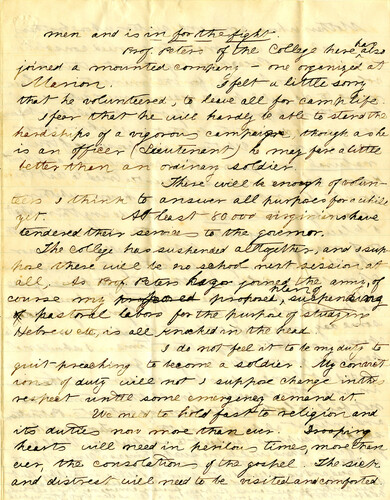 men and is in for the fight.
Prof. Peters of the College here has also
joined a mounted company - one organized at
Marion. I felt a little sorry
that he volunteered, to leave all for camp life.
I fear that he will hardly be able to stand the
hardships of a vigorous campaign, though as he
is an officer (Lieutenant) he may fare a little
better than an ordinary soldier.
There will be enough of volun-
teers I think to answer all purposes for a while
yet. At least 80000 virginians have
tendered their services to the governor.
The College has suspended altogether, and I sup-
pose there will be no school next session at
all. As Prof. Peters has joined the army, of
course my proposed plan of suspending
pastoral labors for the purpose of studying
Hebrew &c, is all knocked in the head.
I do not feel it to be my duty to
quit preaching to become a soldier. My convict
ions of duty will not I suppose change in this
respect until some emergency demand it.
We need to hold fast to religion and
its duties now more than ever. Drooping
hearts will need in perilous times, more than
ever, the consolations of the gospel. The sick
and distrest will need to be visited and comforted